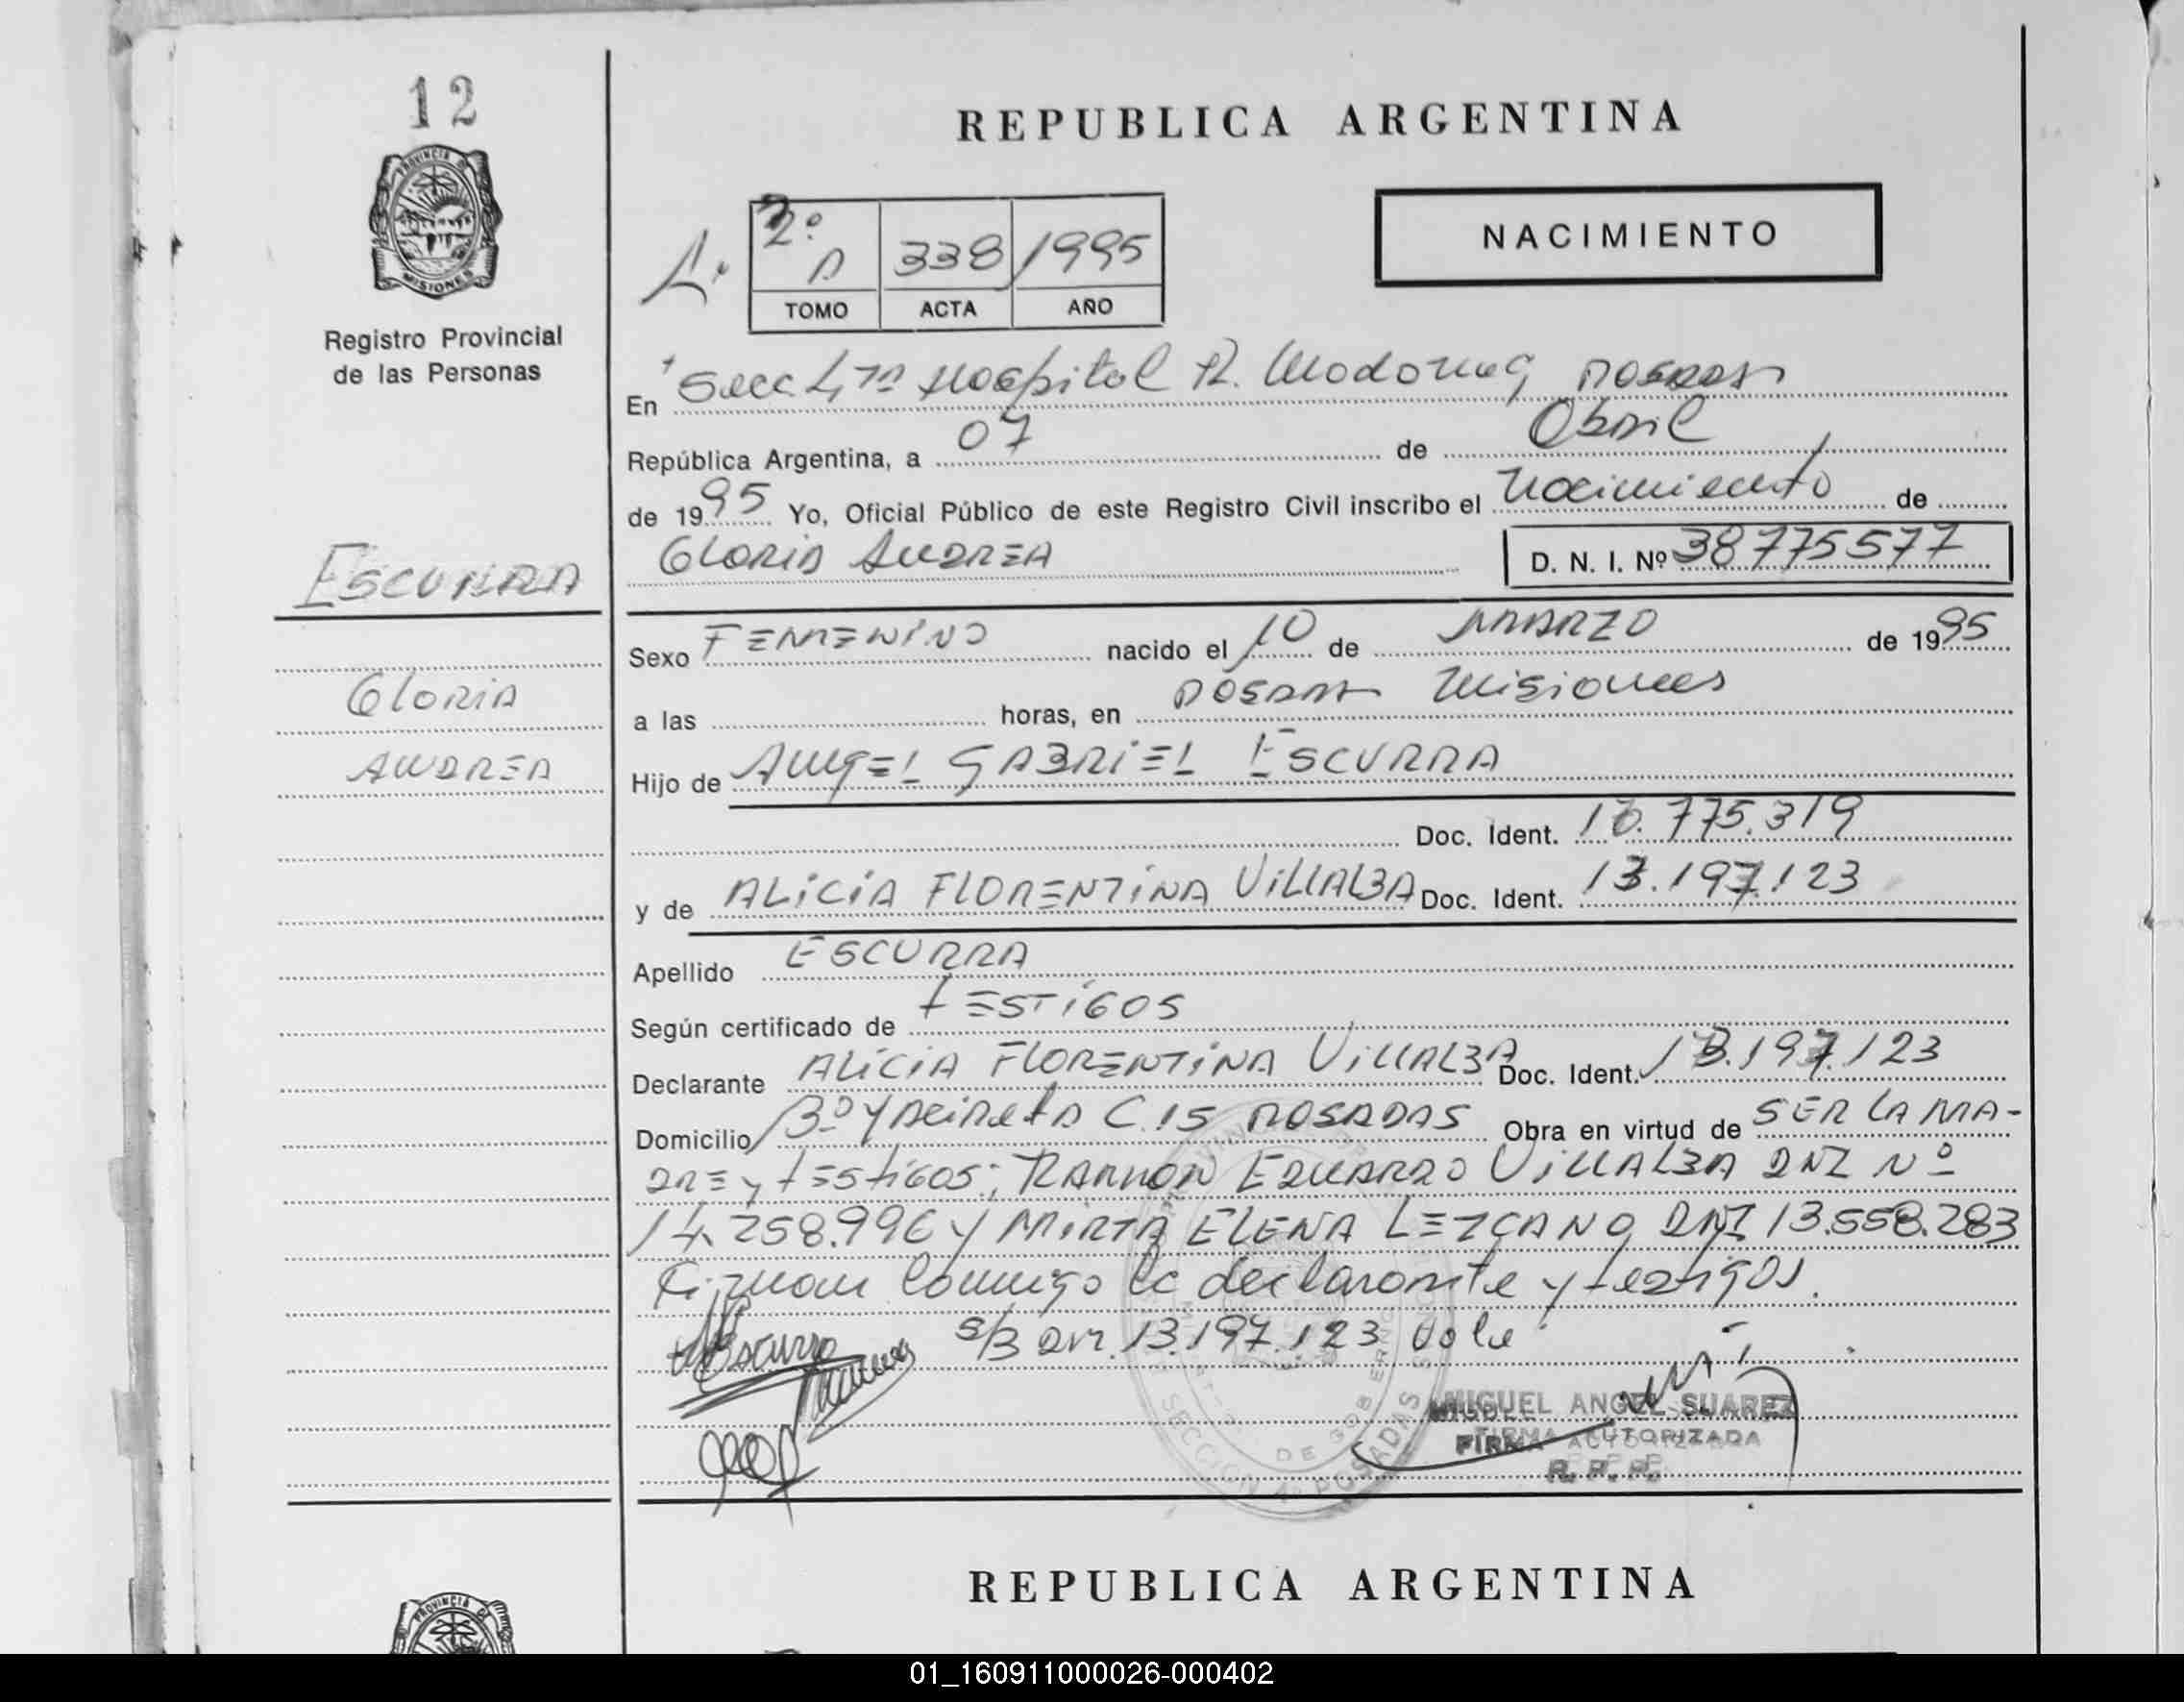 12
REPUBLICA ARGENTINA
PROVINCIA DE
MISIONES
2º
338
1995
NACIMIENTO
TOMO
ACTA
AÑO
Registro Provincial
de las Personas
En Secc 4ta Hospital R. Madariag Posadas
República Argentina, a 07 de Abril
de 1995 Yo, Oficial Público de este Registro Civil inscribo el Nacimiento de
GLORIA ANDREA
D. N. I. Nº 38775577
ESCURRA
Sexo FEMENINO nacido el 10 de MARZO de 1995
GLORIA
a las horas, en Posadas Misiones
ANDREA
Hijo de ANGEL GABRIEL ESCURRA
Doc. Ident. 775.319
y de ALICIA FLORENTINA VILLALBA Doc. Ident. 13.197.123
Apellido ESCURRA
Según certificado de TESTIGOS
Declarante ALICIA FLORENTINA VILLALBA Doc. Ident. 13.197.123
Domicilio Bº Yacireta C. 15 POSADAS Obra en virtud de SER LA MA-
DRE y TESTIGOS; RAMON EDUARDO VILLALBA DNI Nº
14.258.996 Y MIRTA ELENA LEZCANO DNI 13.558.283
Firman conmigo la declarante y testigos.
s/B DNI. 13.197.123 Vale
MIGUEL ANGEL SUAREZ
FIRMA AUTORIZADA
R. P. P.
SECCION 4º POSADAS
REPUBLICA ARGENTINA
PROVINCIA DE
01_160911000026-000402